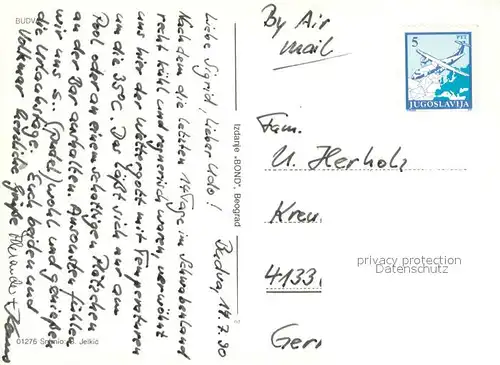 BUDVA
Budva, 14.7.90
Liebe Sigrid, lieber Udo!
Nachdem die letzten 14 Tage im Schwabenland
recht kühl und regnerisch waren, verwöhnt
uns hier der Wettergott mit Temperaturen
um die 35°C. Das läßt sich nur am
Pool oder an einem schattigen Plätzchen
an der Bar aushalten. Ansonsten fühlen
wir uns s. (pudel) wohl und genießen
die Urlaubstage. Euch beiden und
Volkmar herzliche Grüße Alexander +
01276 Snimio: B. Jelkić
Izdanje „BOND", Beograd
2
By Air
mail
5 PTT
JUGOSLAVIJA
Fam.
U. Herholz
Kreu
4133
Ger
privacy protection
Datenschutz